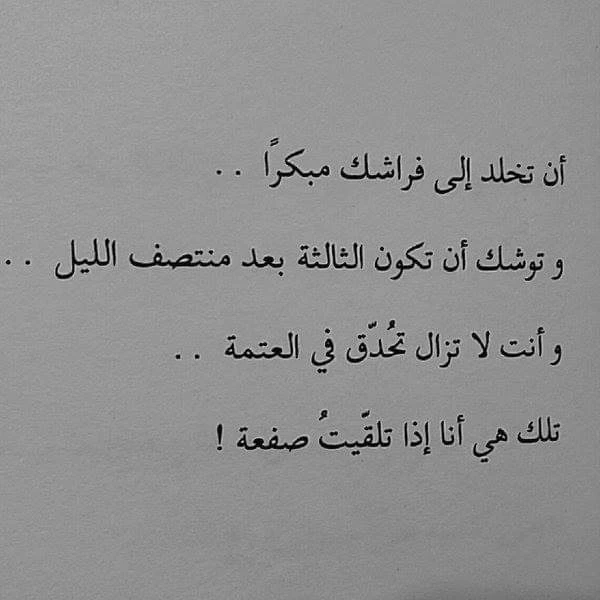 أن تخلد إلى فراشك مبكرًا . .
و توشك أن تكون الثالثة بعد منتصف الليل . .
و أنت لا تزال تحُدّق في العتمة . .
تلك هي أنا إذا تلقّيتُ صفعة !